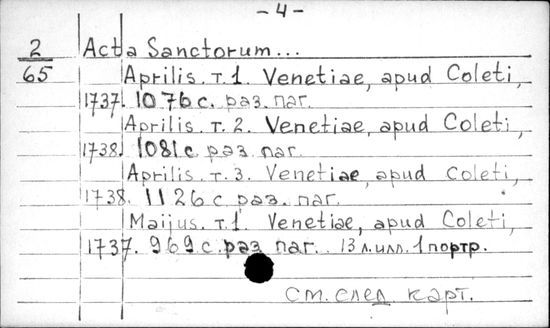 - 4 -
2 Acta Sanctorum...
65 Aprilis. т.1. Venetiae, apud Coleti,
1737. 1076 с. раз. паг.
Aprilis. т. 2. Venetiae, apud Coleti,
1738. 1081 с. раз. паг.
Aprilis. т. 3. Venetiae, apud Coleti,
1738. 1126 с. раз. паг.
Maijus. т.1. Venetiae, apud Coleti,
1737. 969 с. раз паг. 13 л. илл. 1 портр.
См. след карт.